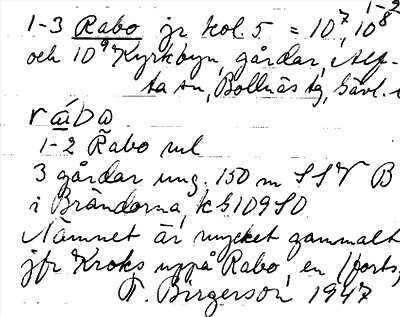 1-2
1-3 Rabo jr kol. 5 = 10⁷, 10⁸
och 10⁹ Kyrkbyn, gårdar, Alf-
ta sn, Bollnäs tg, Gävl.
råba
1-2 Rabo ml
3 gårdar ung. 150 m SSV B
i Brändorna, k G109 SO
Namnet är mycket gammalt
jfr Kroks uppå Rabo, en /forts,
T. Birgerson 1947